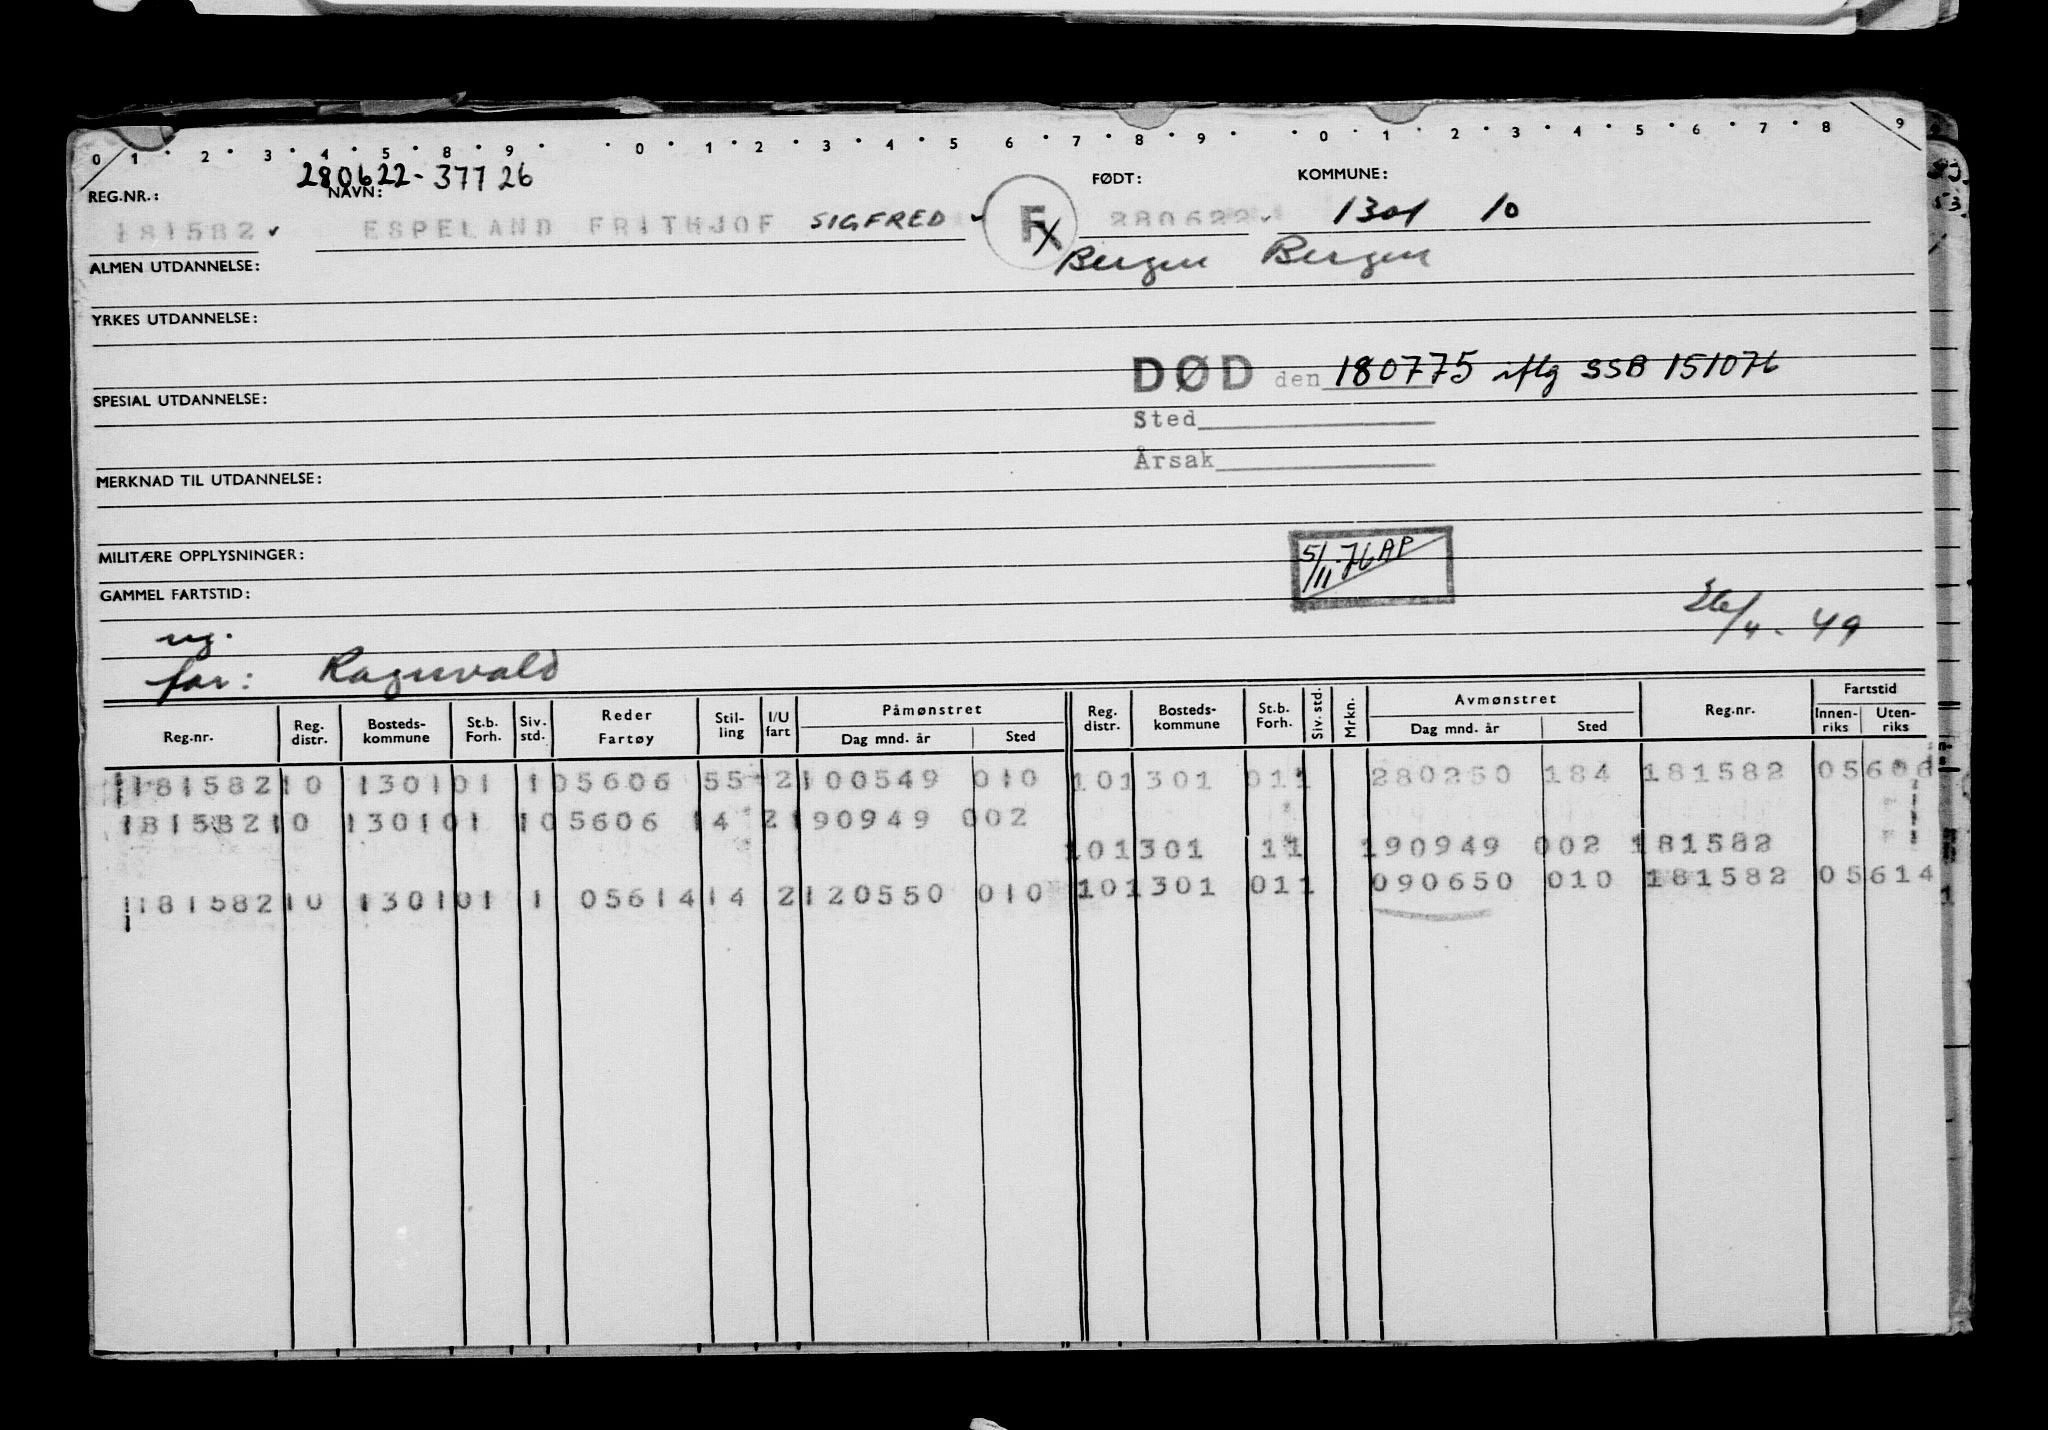 0 1 · 2 · 3 · 4 · 5 · 8 · 9 · · 0 · 1 · 2 · 3 · 4 · 5 · 6 · 7 · 8 · 9 · · 0 · 1 · 2 · 3 · 4 · 5 · 6 · 7 · 8 9
280622-37726
REG.NR.: NAVN: FØDT: KOMMUNE:
181582 ESPELAND FRITHJOF SIGFRED F 280622 1301 10
ALMEN UTDANNELSE: Bergen Bergen
YRKES UTDANNELSE:
DØD den 180775 iflg SSB 151076
SPESIAL UTDANNELSE:
Sted
Årsak
MERKNAD TIL UTDANNELSE:
MILITÆRE OPPLYSNINGER: 5/11-76 AP
GAMMEL FARTSTID:
ug. 26/4-49
far: Ragnvald
Reg.nr. Reg. distr. Bosteds-kommune St.b. Forh. Siv. std. Reder Fartøy Stil-ling I/U fart Påmønstret Dag mnd. år Sted Reg. distr. Bosteds-kommune St.b. Forh. Siv. std. Mrkn. Avmønstret Dag mnd. år Sted Reg.nr. Fartstid Innen-riks Uten-riks
181582 10 1301 01 1 05606 55 2 100549 010 10 1301 011 280250 184 181582 05606
181582 10 1301 01 1 05606 14 2 190949 002
10 1301 11 190949 002 181582
181582 10 1301 01 1 05614 14 2 120550 010 10 1301 011 090650 010 181582 05614